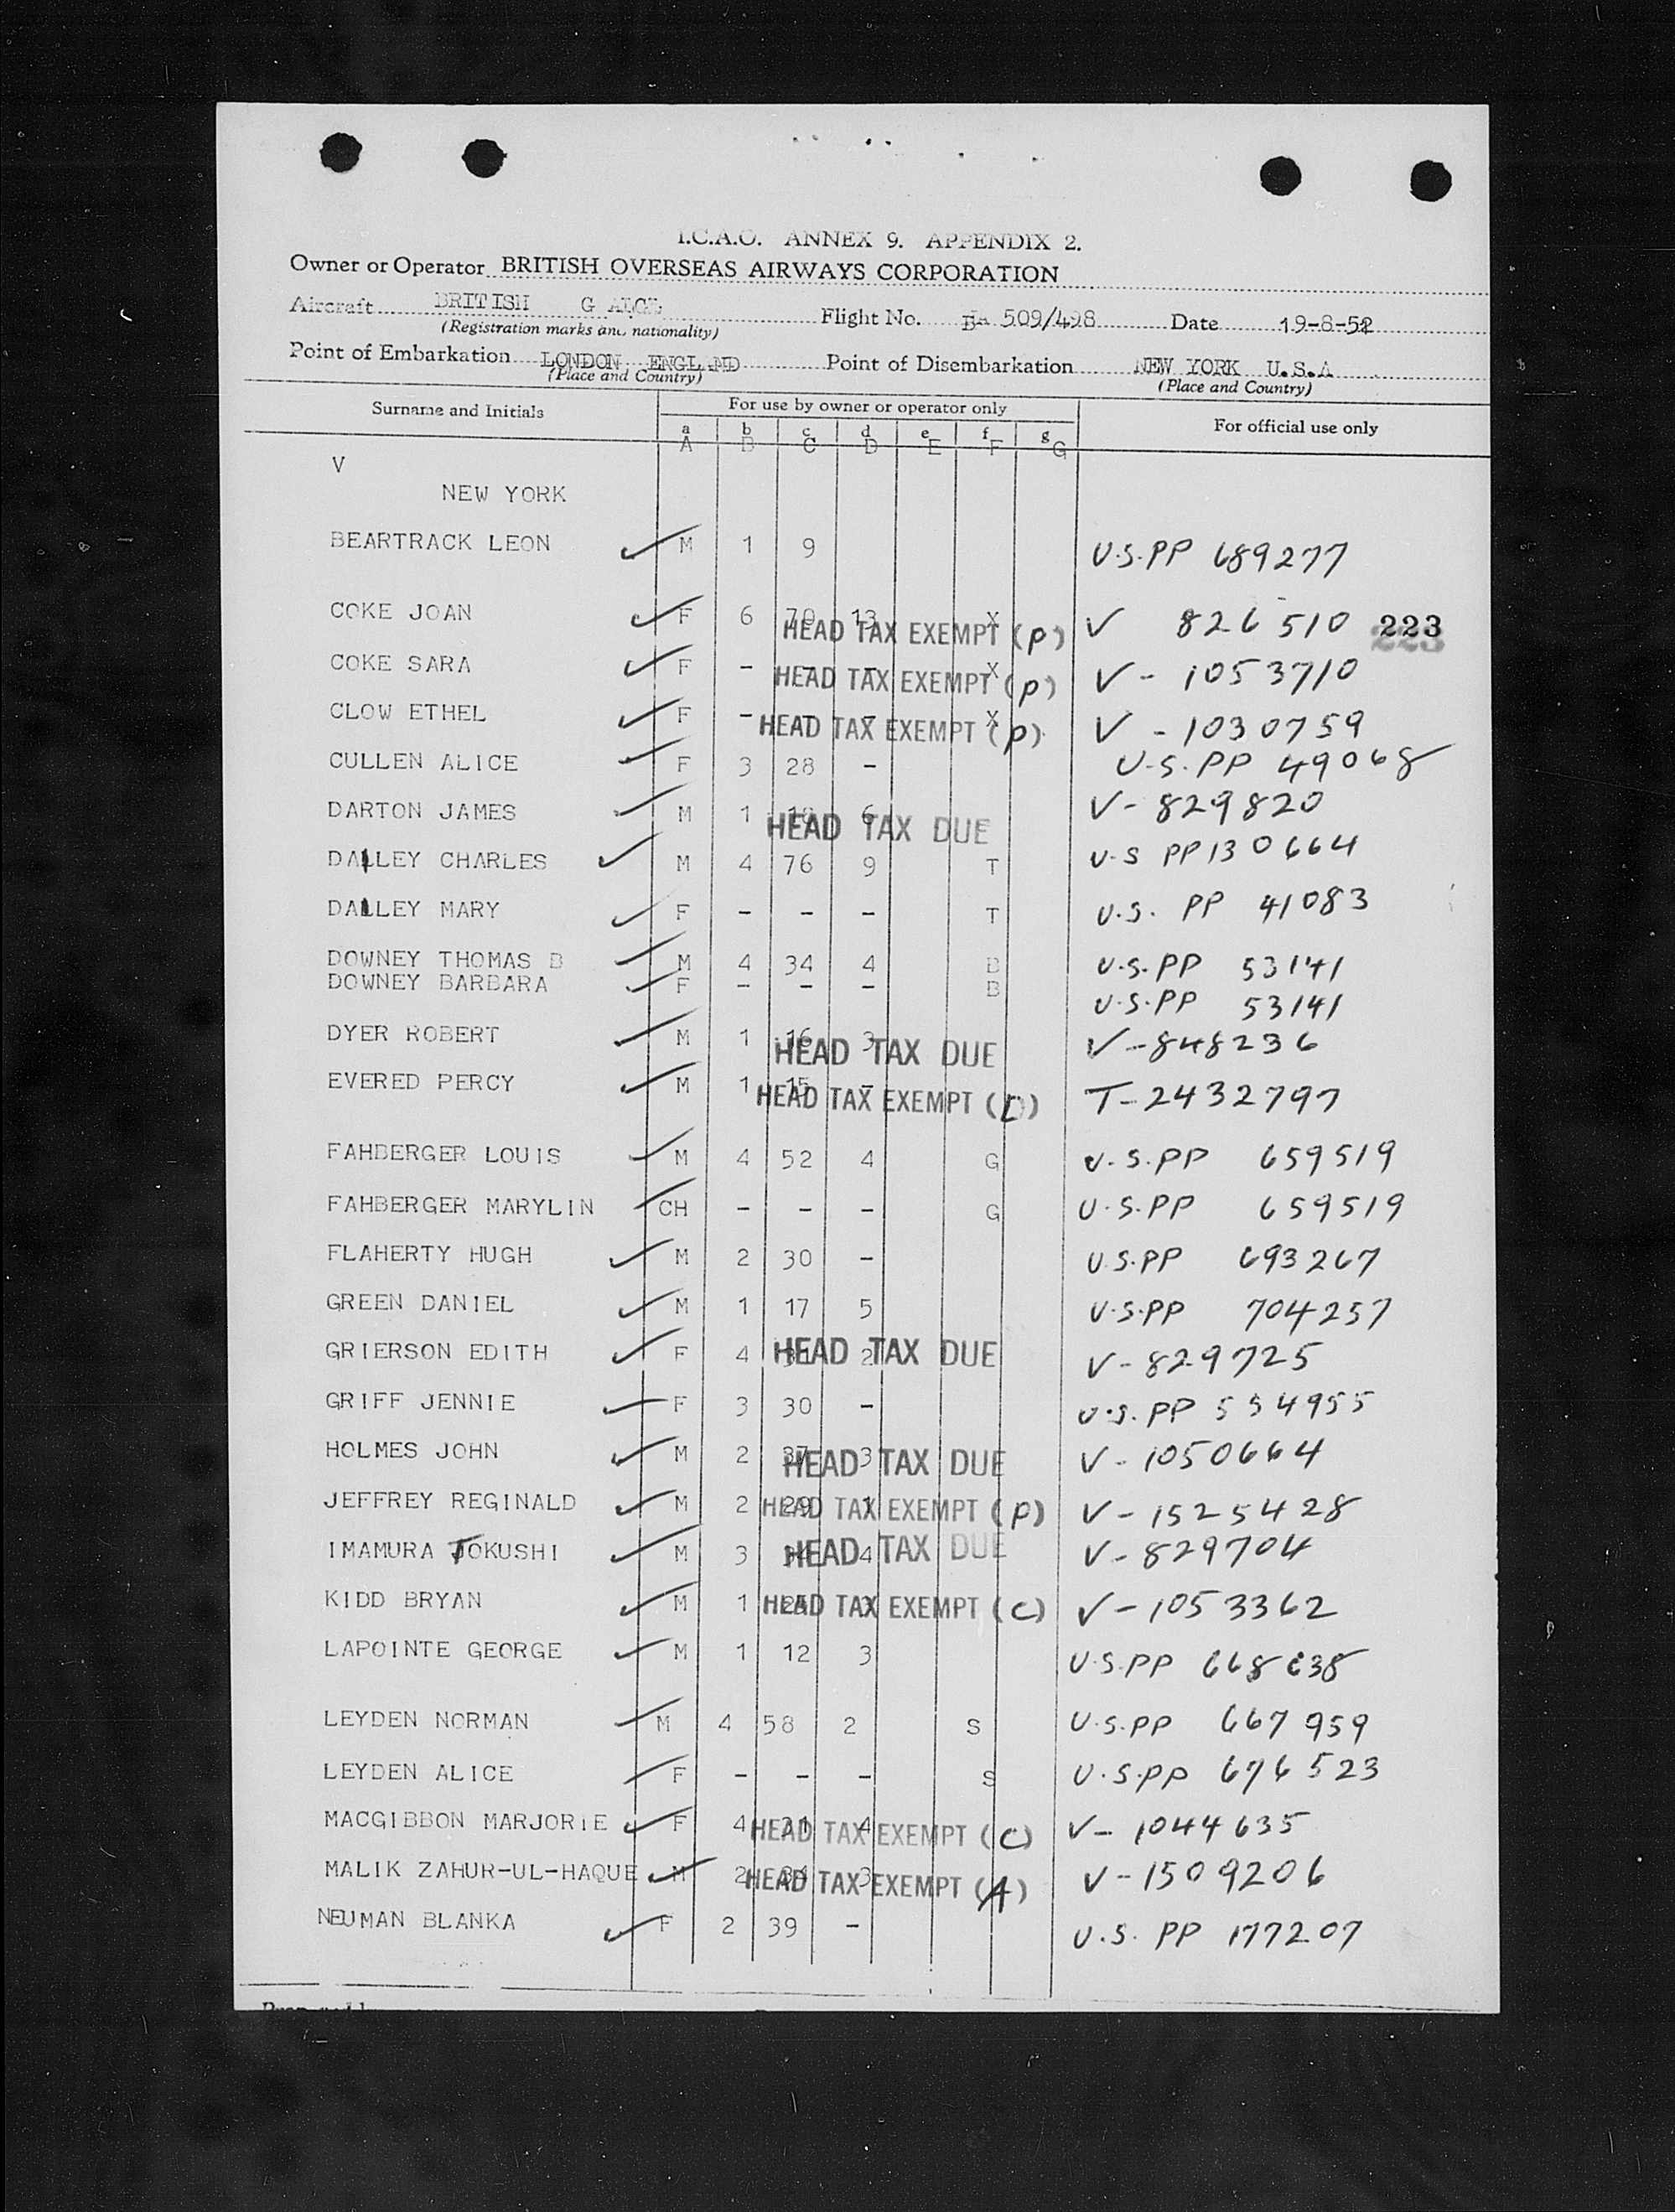 I.C.A.O. ANNEX 9. APPENDIX 2.
Owner or Operator BRITISH OVERSEAS AIRWAYS CORPORATION
Aircraft BRITISH G Flight No. BA 509/498 Date 19-8-52
(Registration marks and nationality)
Point of Embarkation LONDON ENGLAND Point of Disembarkation NEW YORK U.S.A
(Place and Country) (Place and Country)
Surname and Initials For use by owner or operator only For official use only
a b c d e f g
A B C D E F G
V
NEW YORK
BEARTRACK LEON M 1 9 U.S.PP 689277
COKE JOAN F 6 70 13 X HEAD TAX EXEMPT (P) V 826510 223
COKE SARA F - - - X HEAD TAX EXEMPT (P) V - 1053710
CLOW ETHEL F - - - X HEAD TAX EXEMPT (P) V - 1030759
CULLEN ALICE F 3 28 - U.S.PP 49068
DARTON JAMES M 1 18 6 HEAD TAX DUE V - 829820
DALLEY CHARLES M 4 76 9 T U.S PP 130664
DALLEY MARY F - - - T U.S. PP 41083
DOWNEY THOMAS B M 4 34 4 B U.S.PP 53141
DOWNEY BARBARA F - - - B U.S.PP 53141
DYER ROBERT M 1 16 3 HEAD TAX DUE V - 848236
EVERED PERCY M 1 15 - HEAD TAX EXEMPT (D) T - 2432797
FAHBERGER LOUIS M 4 52 4 G U.S.PP 659519
FAHBERGER MARYLIN CH - - - G U.S.PP 659519
FLAHERTY HUGH M 2 30 - U.S.PP 693267
GREEN DANIEL M 1 17 5 U.S.PP 704257
GRIERSON EDITH F 4 2 HEAD TAX DUE V - 829725
GRIFF JENNIE F 3 30 - U.S.PP 554955
HOLMES JOHN M 2 37 3 HEAD TAX DUE V - 1050664
JEFFREY REGINALD M 2 29 1 HEAD TAX EXEMPT (P) V - 1525428
IMAMURA TOKUSHI M 3 4 HEAD TAX DUE V - 829704
KIDD BRYAN M 1 HEAD TAX EXEMPT (C) V - 1053362
LAPOINTE GEORGE M 1 12 3 U.S.PP
LEYDEN NORMAN M 4 58 2 S U.S.PP 667959
LEYDEN ALICE F - - - S U.S.PP 676523
MACGIBBON MARJORIE F 4 4 HEAD TAX EXEMPT (C) V - 1044635
MALIK ZAHUR-UL-HAQUE M 2 3 HEAD TAX EXEMPT (A) V - 1509206
NEUMAN BLANKA F 2 39 - U.S. PP 177207